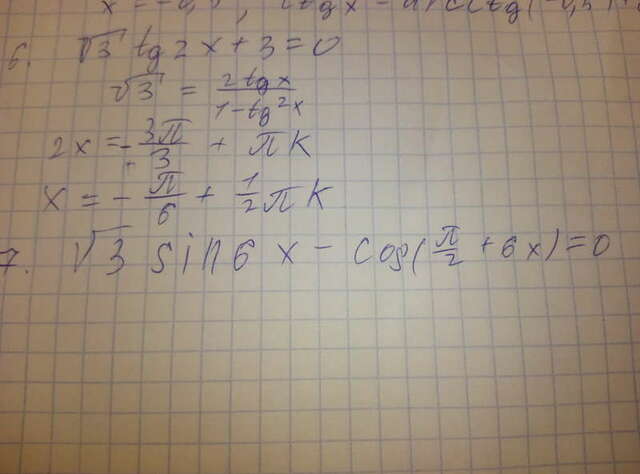 6. √3 tg 2x + 3 = 0
√3 = 2 tg x / 1 - tg²x
2x = - 3π/3 + πK
x = - π/6 + 1/2 πK
7. √3 sin 6x - cos(π/2 + 6x) = 0